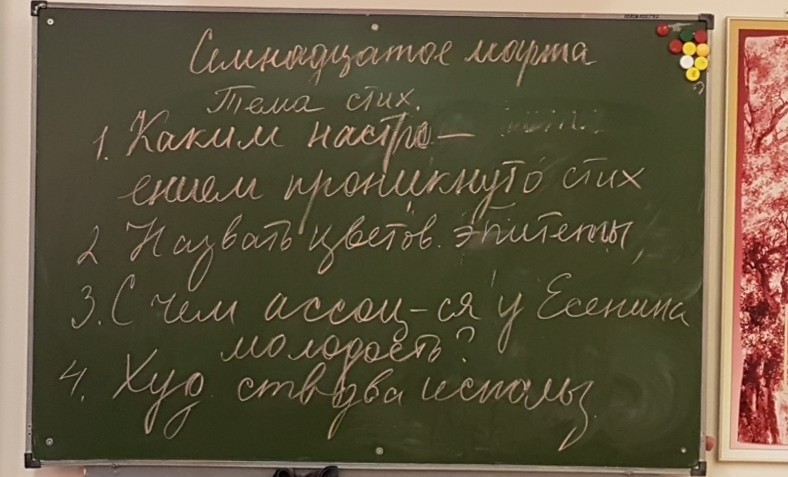 Семнадцатое марта
Тема стих.
1. Каким настро-
ением проникнуто стих
2 Назвать цветов. эпитеты,
3. С чем ассоц-ся у Есенина
молодость?
4. Худ использ.